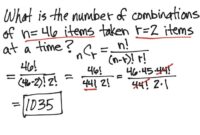 What is the number of combinations
of n=46 items taken r=2 items
at a time? nCr = n!/(n-r)! r!
= 46!/(46-2)! 2! = 46!/44! 2! = 46·45·44!/44! 2·1
= 1035